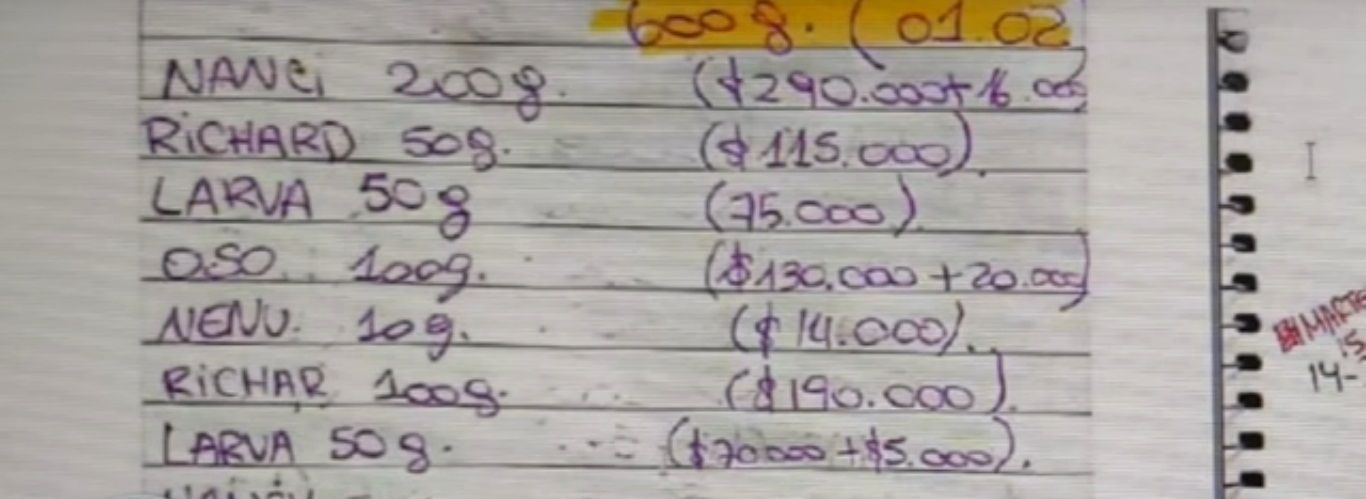 600g. (01.02
NANCi 200g. ($290.000+16.000)
RiCHARD 50g. ($115.000).
LARVA 50g (75.000)
OSO 100g. ($130.000+20.000)
NENU. 10g. ($14.000).
RiCHAR 100g. ($190.000).
LARVA 50g. ($70000+$5.000).
14-